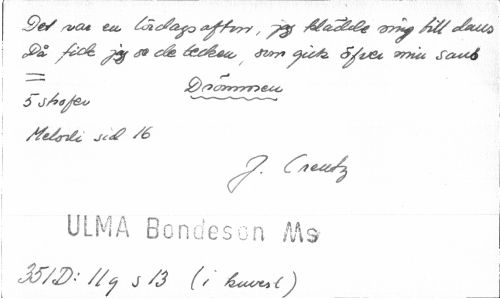 Det var en lördagsafton, jag klädde mig till dans
Då fick jag se de tecken, som gick öfver min sans
Drömmen
5 strofer
Melodi sid 16
J. Creutz
ULMA Bondeson Ms
351D: 11q s 13 (i kuvert)